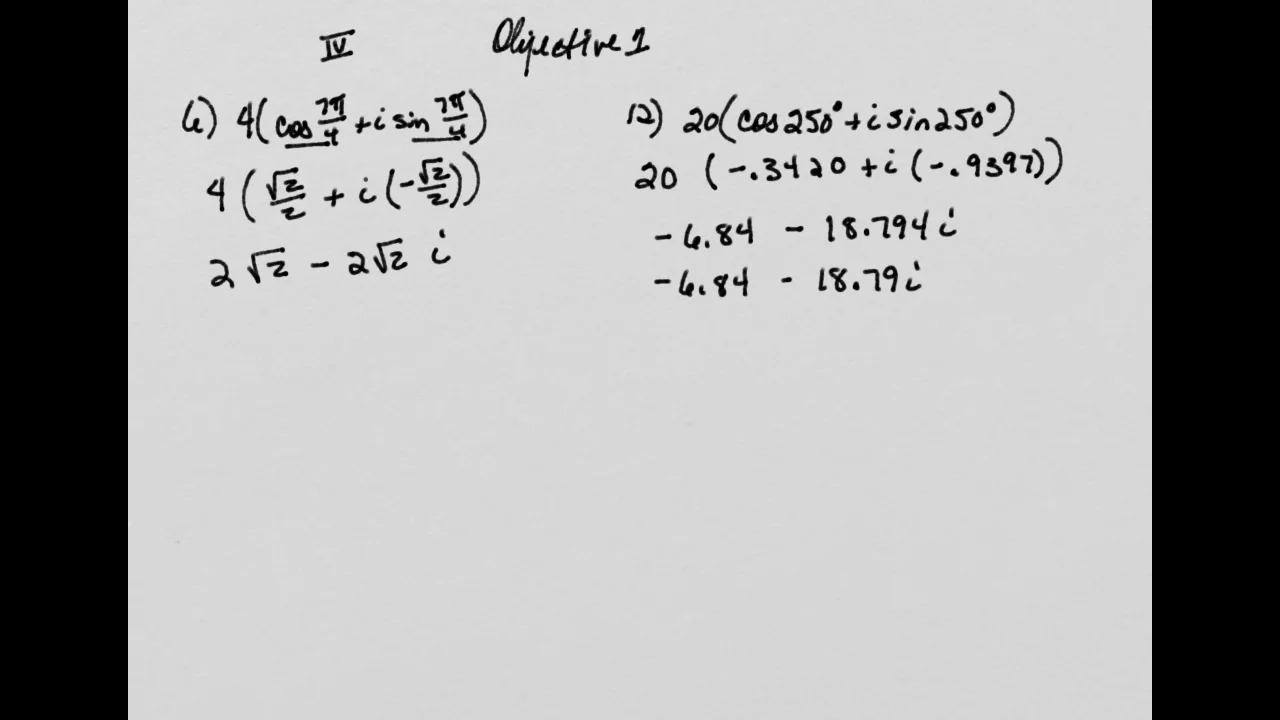 IV Objective 1
6) 4(cos 7π/4 + i sin 7π/4)
4(√2/2 + i(-√2/2))
2√2 - 2√2 i
12) 20(cos 250° + i sin 250°)
20 (-.3420 + i(-.9397))
-6.84 - 18.794i
-6.84 - 18.79i